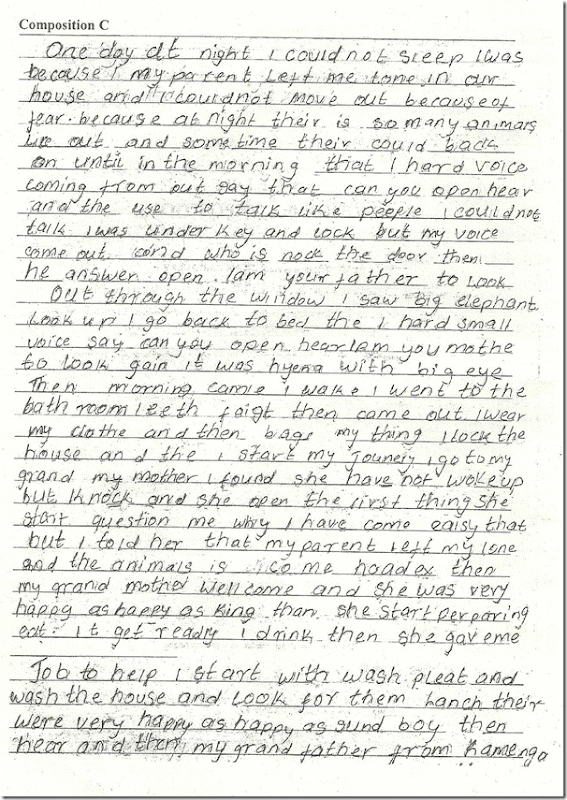 Composition C
One day at night I could not sleep I was
because I my parent left me lone in our
house and I could not move out because of
fear. because at night their is so many animars
live out and some time their could back
on until in the morning that I hard voice
coming from out say that can you open hear
and the use to talk like people I could not
talk I was under key and lock but my voice
come out who is nock the door then
he answer open. Iam your father to look
Out through the window I saw big elephant
Look up I go back to bed the I hard small
voice say can you open hear Iam you mothe
to look gain it was hyena with big eye
Then morning came I wake I went to the
bathroom teeth then came out I wear
my clothe and then bags my thing I lock the
house and the I start my jounery I go to my
grand my mother I found she have not woke up
but I knock and she open the first thing she
start question me why I have come eaisy that
but I told her that my parent left my lone
and the animals is to me then
my grand mother wellcome and she was very
happy as happy as King than she start perparing
eat. It get ready I drink then she gave me
Job to help I start with wash pleat and
wash the house and Look for them Lanch their
were very happy as happy as sund boy then
hear and my grand father from Kamenga